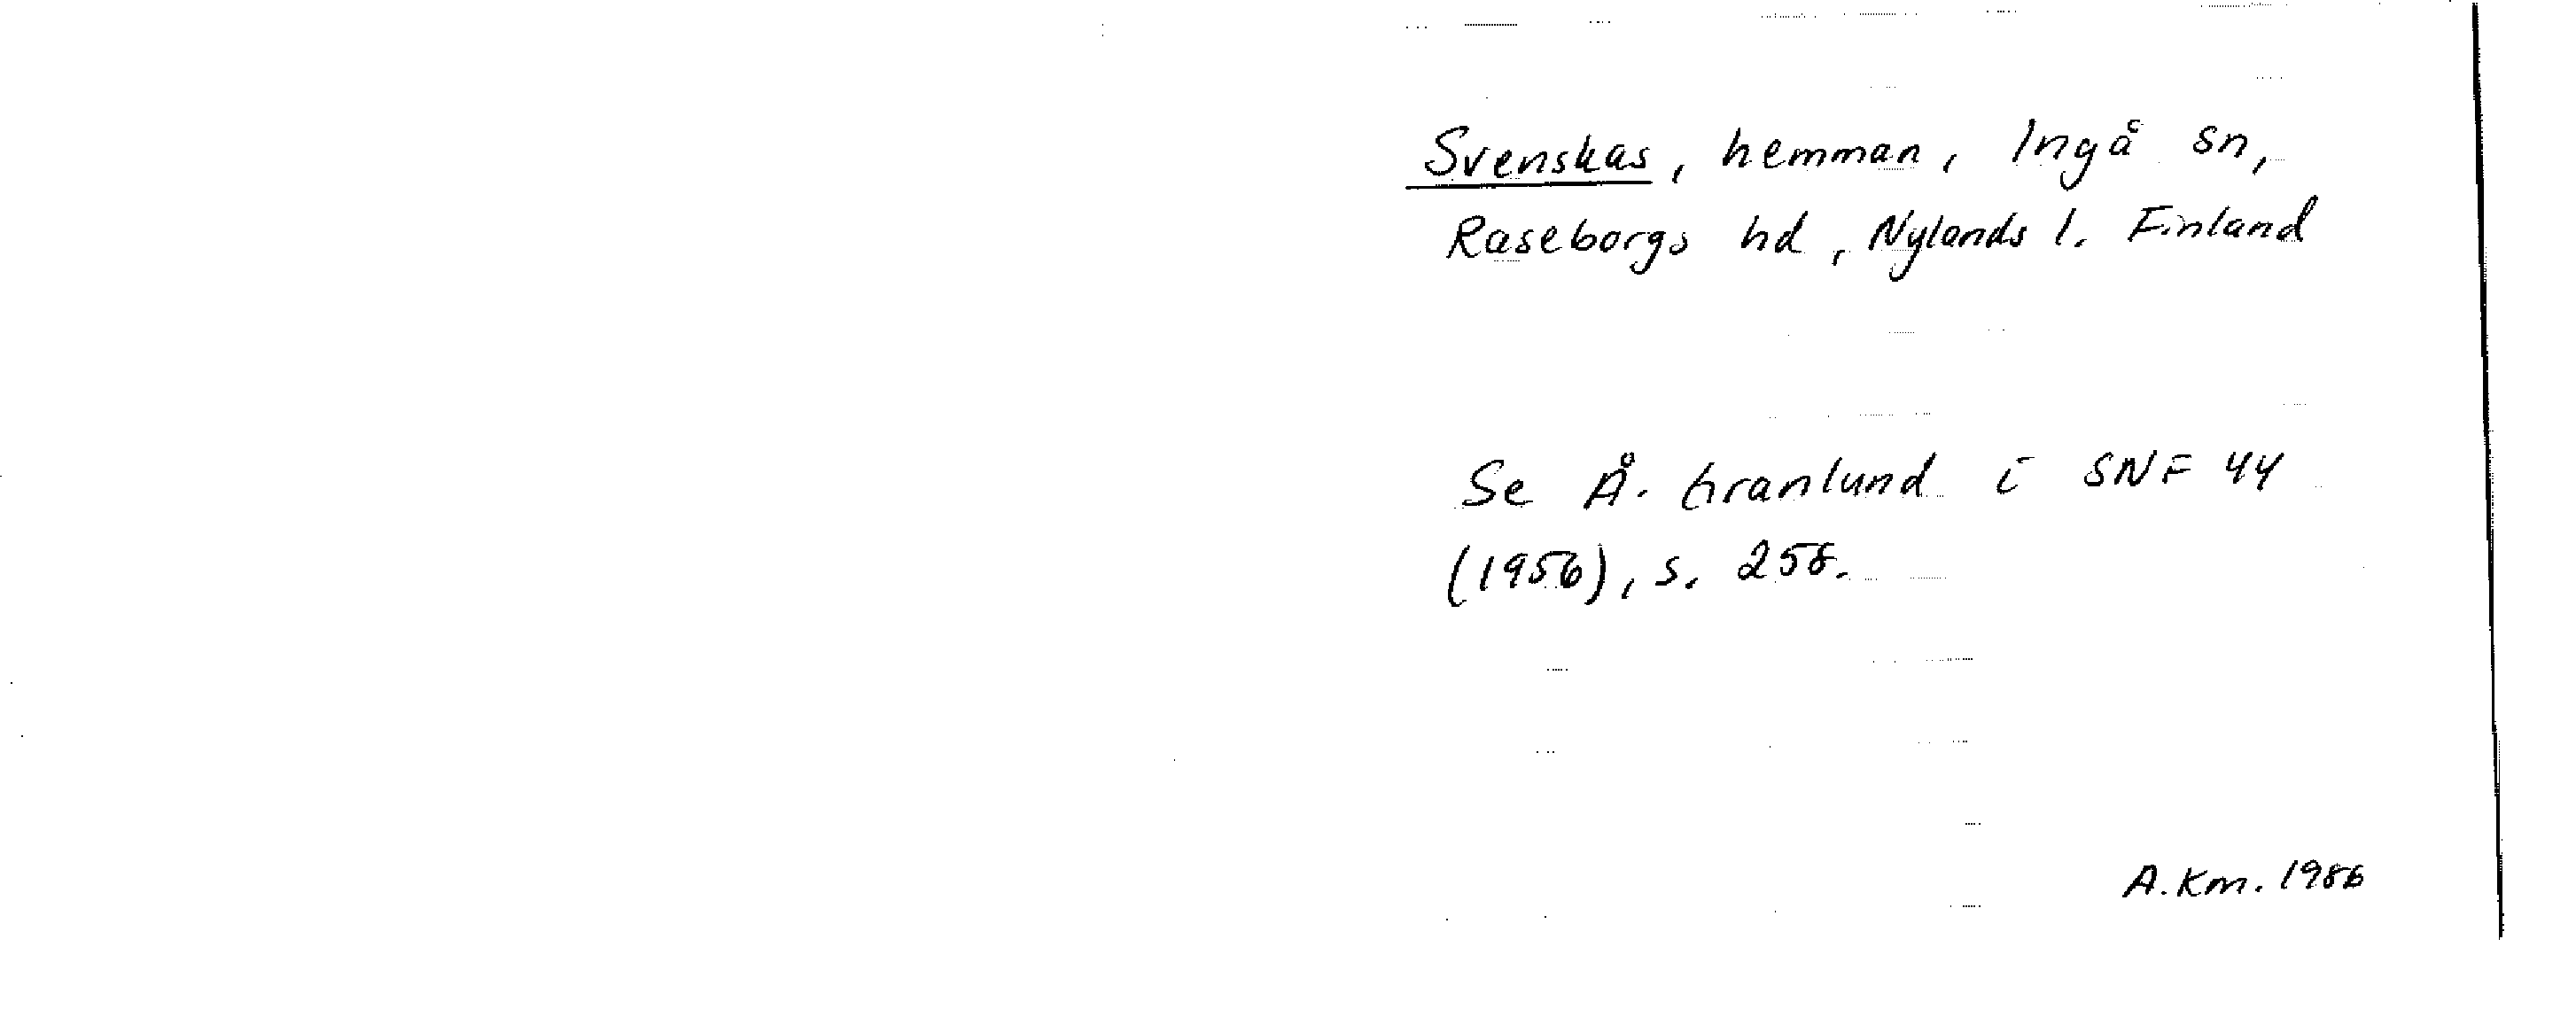 Svenskas, hemman, Ingå sn,
Raseborgs hd, Nylands l. Finland
Se Å. Granlund i SNF 44
(1956), s. 258.
A. Km. 1986